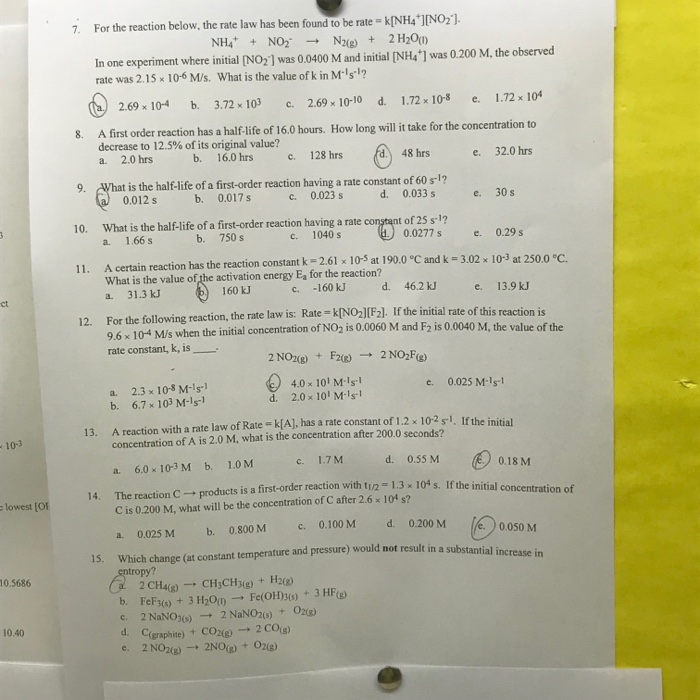 7. For the reaction below, the rate law has been found to be rate = k[NH₄⁺][NO₂⁻].
NH₄⁺ + NO₂⁻ → N₂(g) + 2 H₂O(l)
In one experiment where initial [NO₂⁻] was 0.0400 M and initial [NH₄⁺] was 0.200 M, the observed
rate was 2.15 × 10⁻⁶ M/s. What is the value of k in M⁻¹s⁻¹?
a. 2.69 × 10⁻⁴ b. 3.72 × 10³ c. 2.69 × 10⁻¹⁰ d. 1.72 × 10⁻⁸ e. 1.72 × 10⁴
8. A first order reaction has a half-life of 16.0 hours. How long will it take for the concentration to
decrease to 12.5% of its original value?
a. 2.0 hrs b. 16.0 hrs c. 128 hrs d. 48 hrs e. 32.0 hrs
9. What is the half-life of a first-order reaction having a rate constant of 60 s⁻¹?
a. 0.012 s b. 0.017 s c. 0.023 s d. 0.033 s e. 30 s
10. What is the half-life of a first-order reaction having a rate constant of 25 s⁻¹?
a. 1.66 s b. 750 s c. 1040 s d. 0.0277 s e. 0.29 s
11. A certain reaction has the reaction constant k = 2.61 × 10⁻⁵ at 190.0 °C and k = 3.02 × 10⁻³ at 250.0 °C.
What is the value of the activation energy Eₐ for the reaction?
a. 31.3 kJ b. 160 kJ c. -160 kJ d. 46.2 kJ e. 13.9 kJ
12. For the following reaction, the rate law is: Rate = k[NO₂][F₂]. If the initial rate of this reaction is
9.6 × 10⁻⁴ M/s when the initial concentration of NO₂ is 0.0060 M and F₂ is 0.0040 M, the value of the
rate constant, k, is ____.
2 NO₂(g) + F₂(g) → 2 NO₂F(g)
a. 2.3 × 10⁻⁸ M⁻¹s⁻¹ c. 4.0 × 10¹ M⁻¹s⁻¹ e. 0.025 M⁻¹s⁻¹
b. 6.7 × 10³ M⁻¹s⁻¹ d. 2.0 × 10¹ M⁻¹s⁻¹
13. A reaction with a rate law of Rate = k[A], has a rate constant of 1.2 × 10⁻² s⁻¹. If the initial
concentration of A is 2.0 M, what is the concentration after 200.0 seconds?
a. 6.0 × 10⁻³ M b. 1.0 M c. 1.7 M d. 0.55 M e. 0.18 M
14. The reaction C → products is a first-order reaction with t₁/₂ = 1.3 × 10⁴ s. If the initial concentration of
C is 0.200 M, what will be the concentration of C after 2.6 × 10⁴ s?
a. 0.025 M b. 0.800 M c. 0.100 M d. 0.200 M e. 0.050 M
15. Which change (at constant temperature and pressure) would not result in a substantial increase in
entropy?
a. 2 CH₄(g) → CH₃CH₃(g) + H₂(g)
b. FeF₃(s) + 3 H₂O(l) → Fe(OH)₃(s) + 3 HF(g)
c. 2 NaNO₃(s) → 2 NaNO₂(s) + O₂(g)
d. C(graphite) + CO₂(g) → 2 CO(g)
e. 2 NO₂(g) → 2NO(g) + O₂(g)
ct
10⁻³
lowest
10.5686
10.40